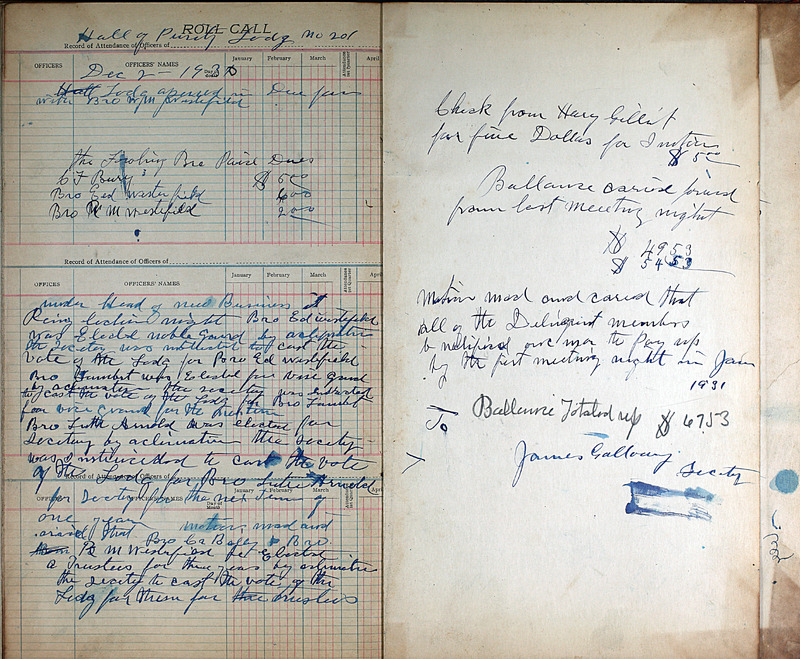 ROLL CALL
Hall of Purity Lodg No 201
Record of Attendance of Officers of
OFFICERS
OFFICERS' NAMES
January
February
March
Attendance for Quarter
April
Dec 2 - 1930
Lodg opened in Due form
with Bro W M Westefield
the Bro Paied Dues
C F Bury $ 6.00
Bro Ed Westerfield 6.00
Bro R M Westifield 2.00
Record of Attendance of Officers of
OFFICERS
OFFICERS' NAMES
January
February
March
Attendance for Quarter
April
under Head of new Business it
Being Election night Bro Ed westifield
was Elected noble grand by
the Secetery was to cast the
vote of the Lodg for Bro Ed Westifield
Bro was Elected for vice grand
by the secetery was
to cast the vote of the Lodg for Bro
for vice grand for the
Bro Arnold was elected for
Secetery by aclimation the secety
was to cast the vote
of the Lodg for Bro Arnold
for Secety for the next Term of
one year motion mad and
caried that Bro Ca Baley & Bro
R M Westifield be Elected
a Trustees for three years by
the Secety to cast the vote of the
Lodg for them for trustees
Check from Hary
for five Dollars for
$ 5.00
Ballance caried forward
from last Meeting night
$ 4953
$ 5453
Motion mad and caried that
all of the Delinquent members
be notified one mor to Pay up
by the first meeting night in Jan
1931
To Ballance Totaled up $ 6753
James Galloway
Secety